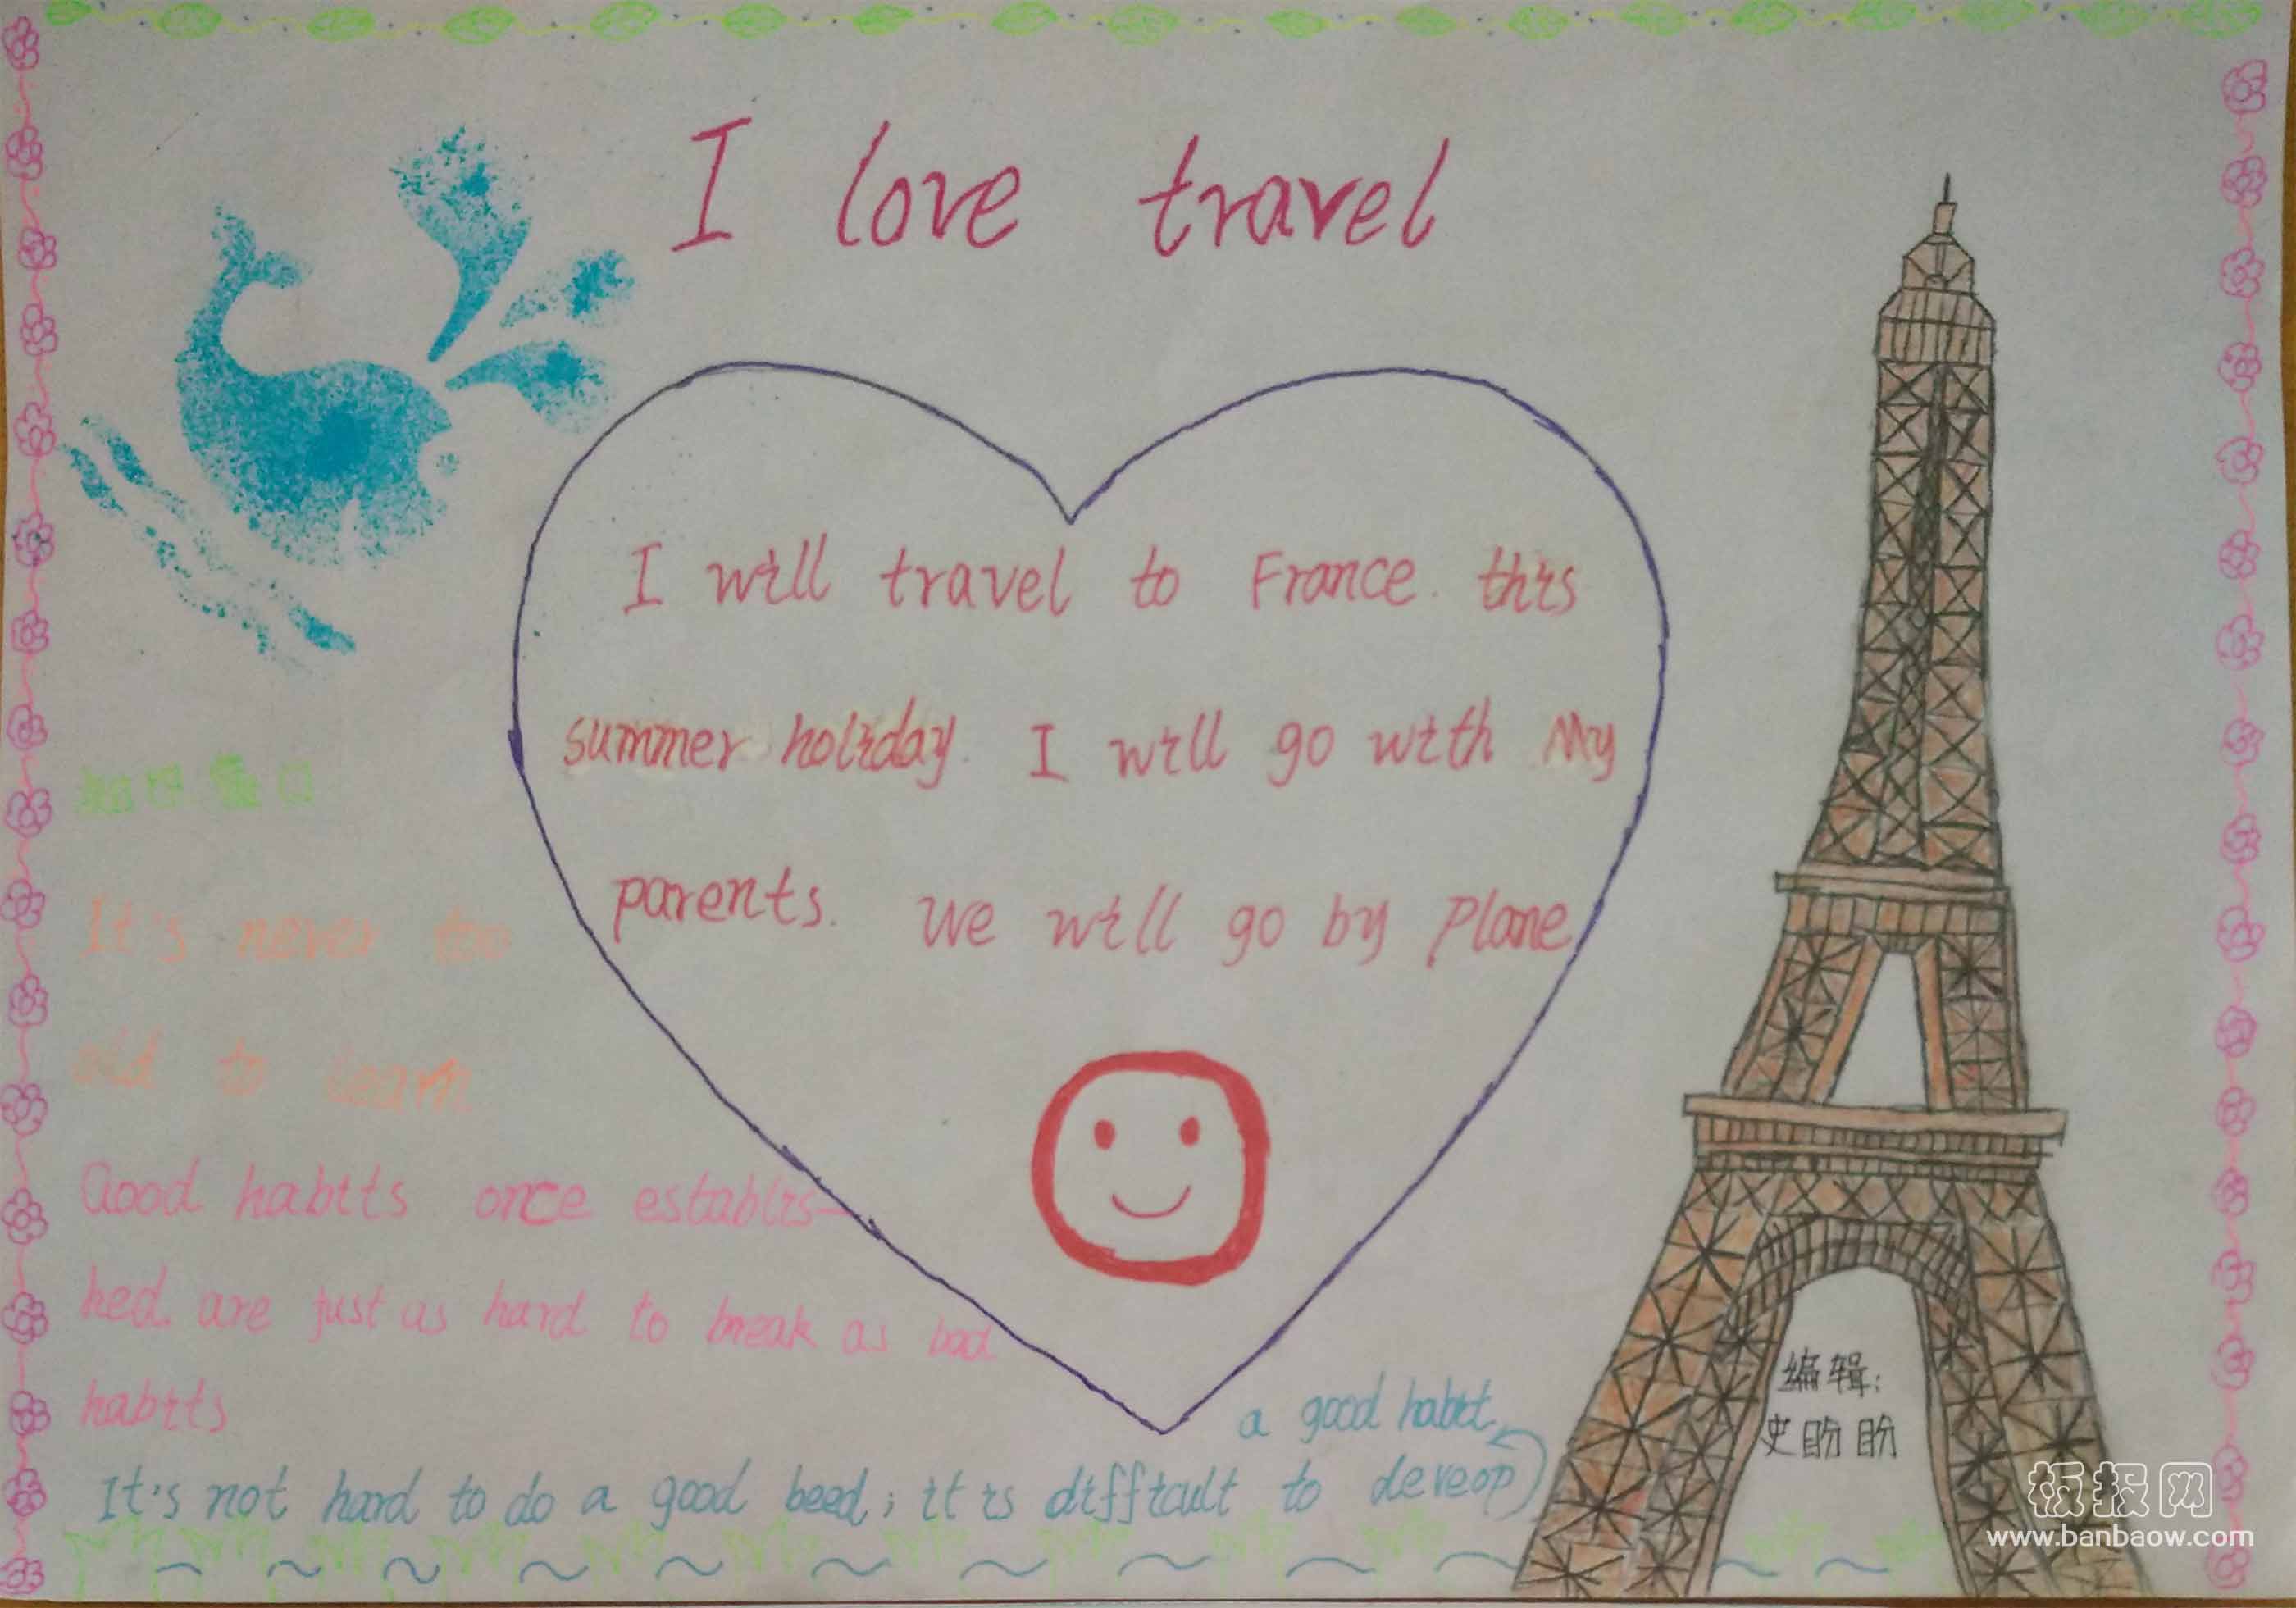 I love travel
I will travel to France. this
summer holiday. I will go with My
parents. We will go by Plane
It's never too
old to learn
Good habits once establis-
hed. are just as hard to break as bad
habits
a good habit
It's not hard to do a good beed; it is difficult to deveop
编辑:
史盼盼
板报网
www.banbaow.com